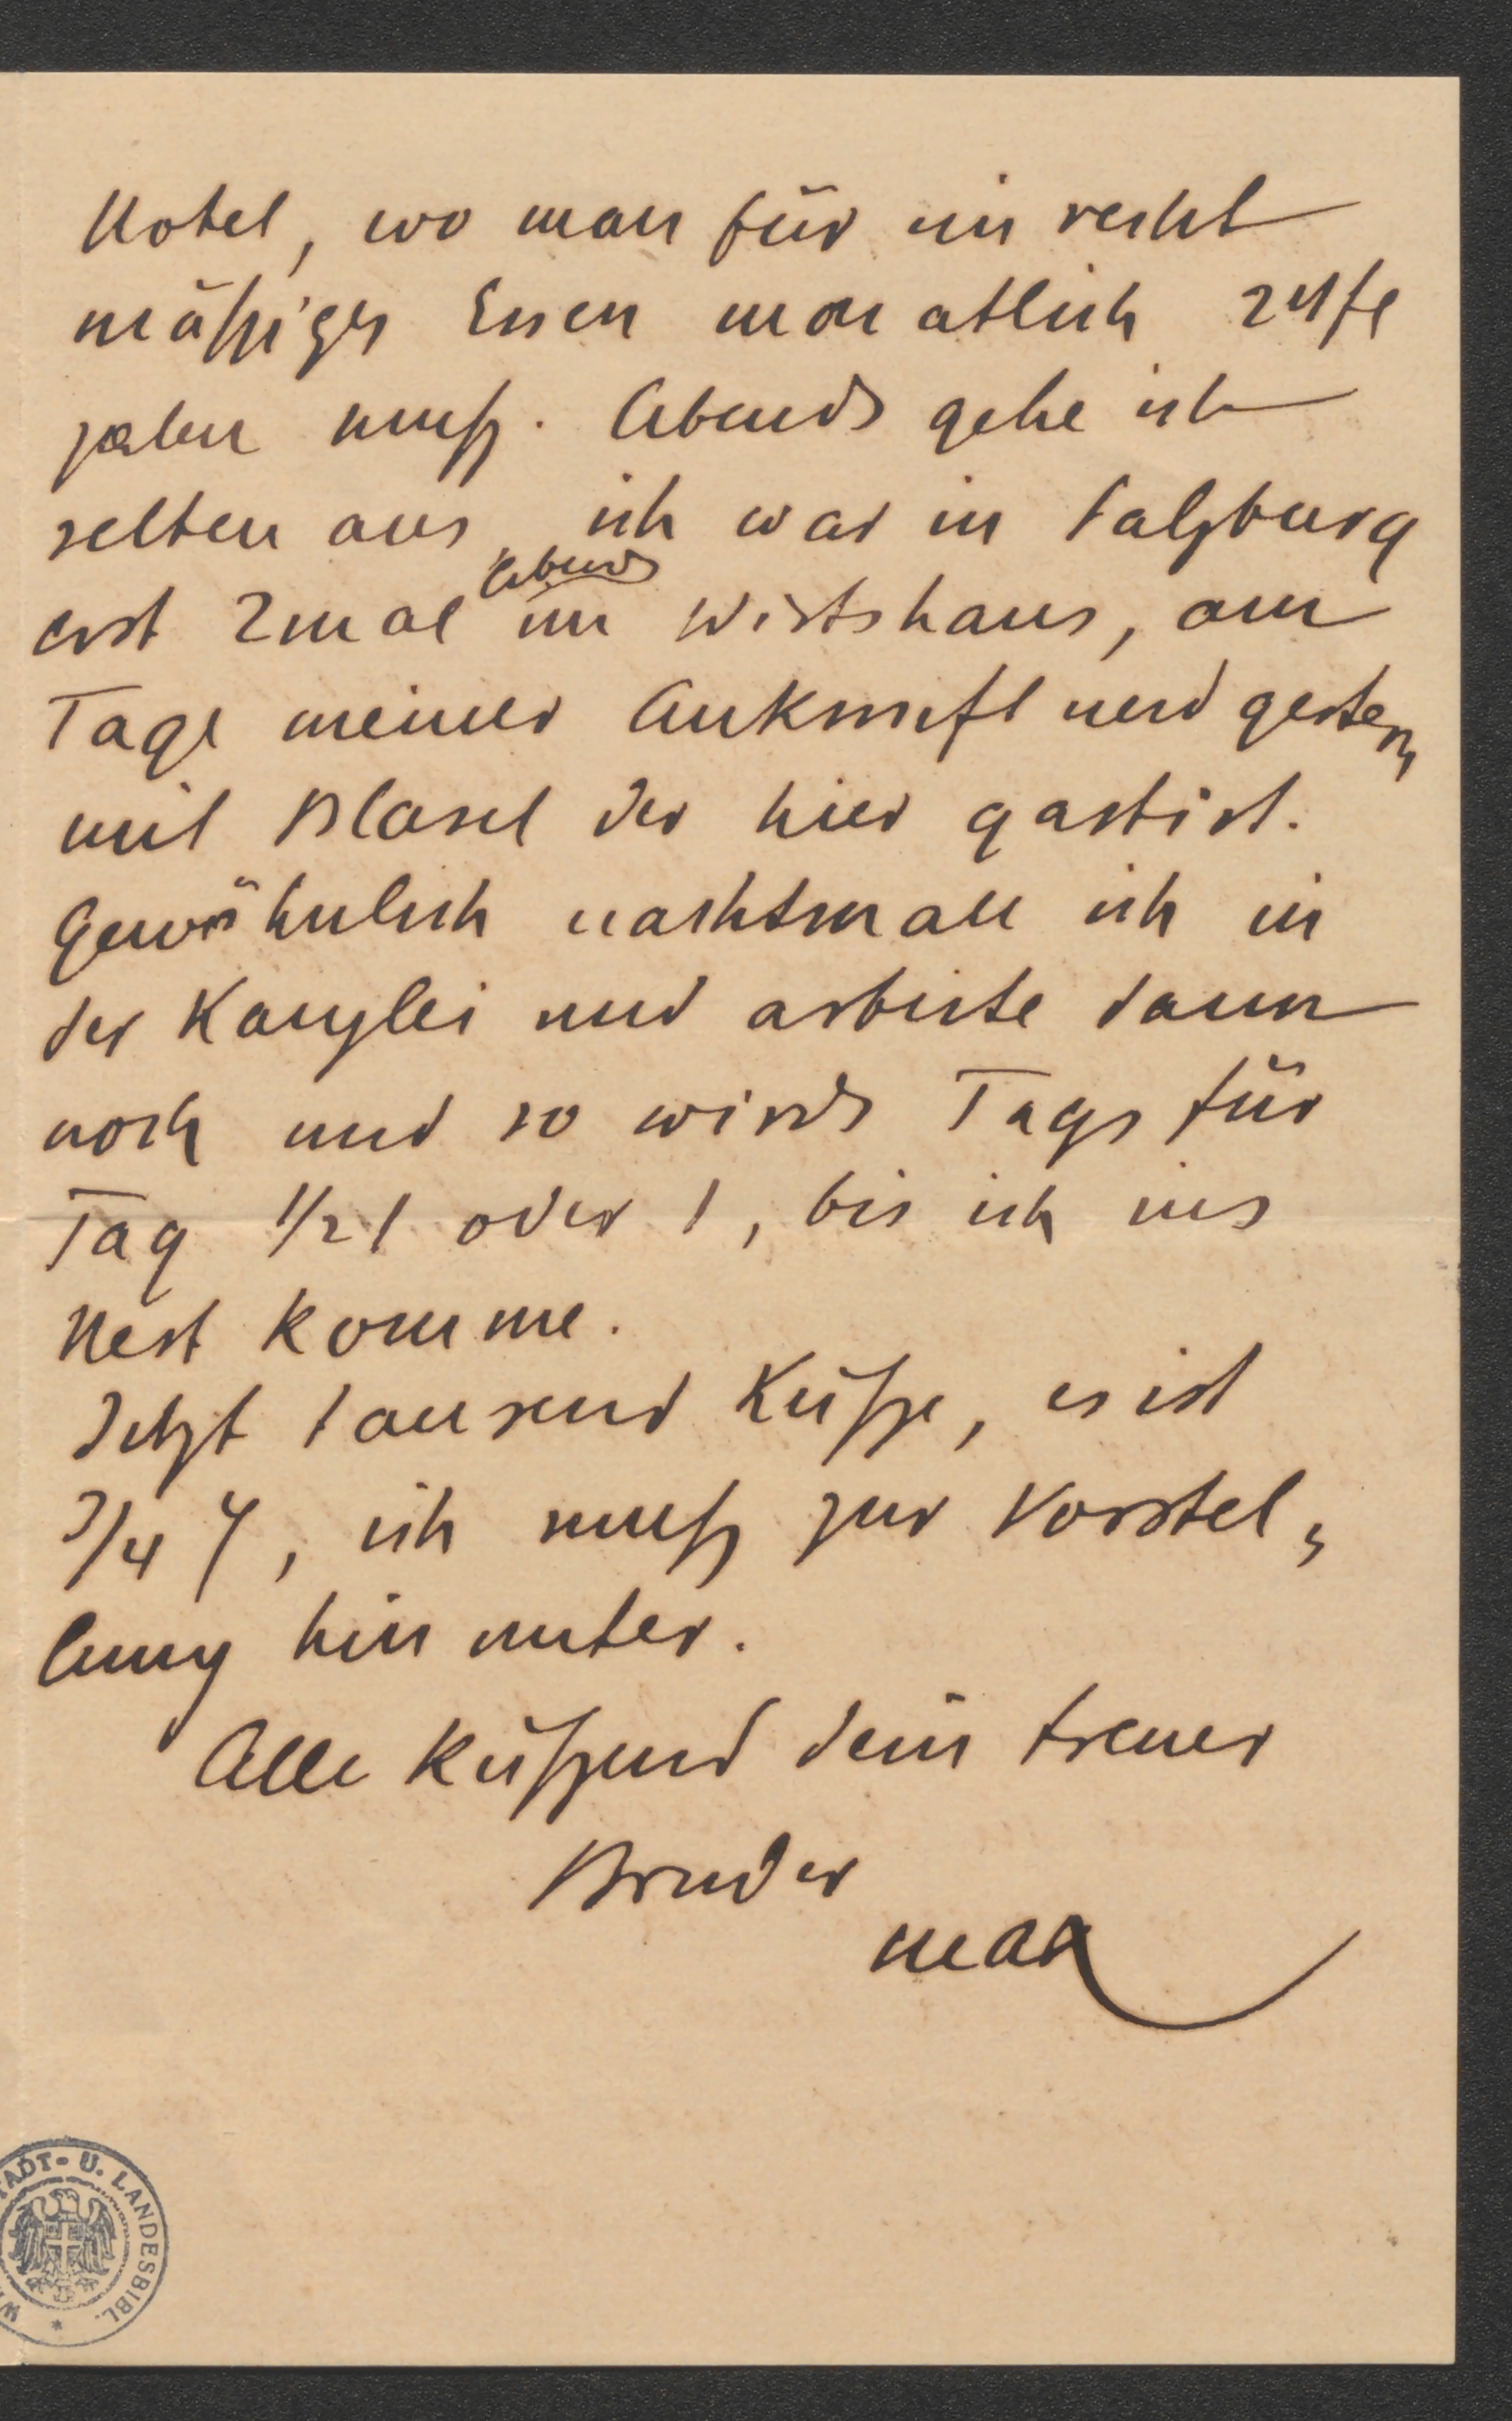 Hotel, wo man für ein recht
mäßiges Essen monatlich 24 fl
zalen muß. Abends gehe ich
selten aus, ich war in Salzburg
erst 2mal abends im Wirtshaus, am
Tage meiner Ankunft und gestern,
mit Blasel der hier gastirt.
Gewöhnlich nachtmale ich in
der Kanzlei und arbeite dann
noch und so wirds Tags für
Tag 1/2 1 oder 1, bis ich ins
Nest komme.
Jetzt tausend Küße, es ist
3/4 7, ich muß zur Vorstel-
lung hinunter.
Alle küßend dein treuer
Bruder
Max
STADT- U. LANDESBIBL.